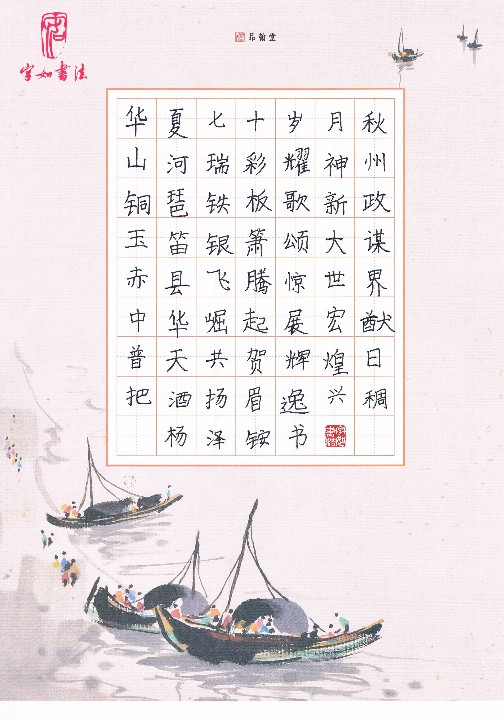 字如書法
华夏七十岁月秋
山河瑞彩耀神州
铜琶铁板歌新政
玉笛银箫颂大谋
赤县飞腾惊世界
中华崛起展宏猷
普天共贺辉煌日
把酒扬眉逸兴稠
杨泽铵书